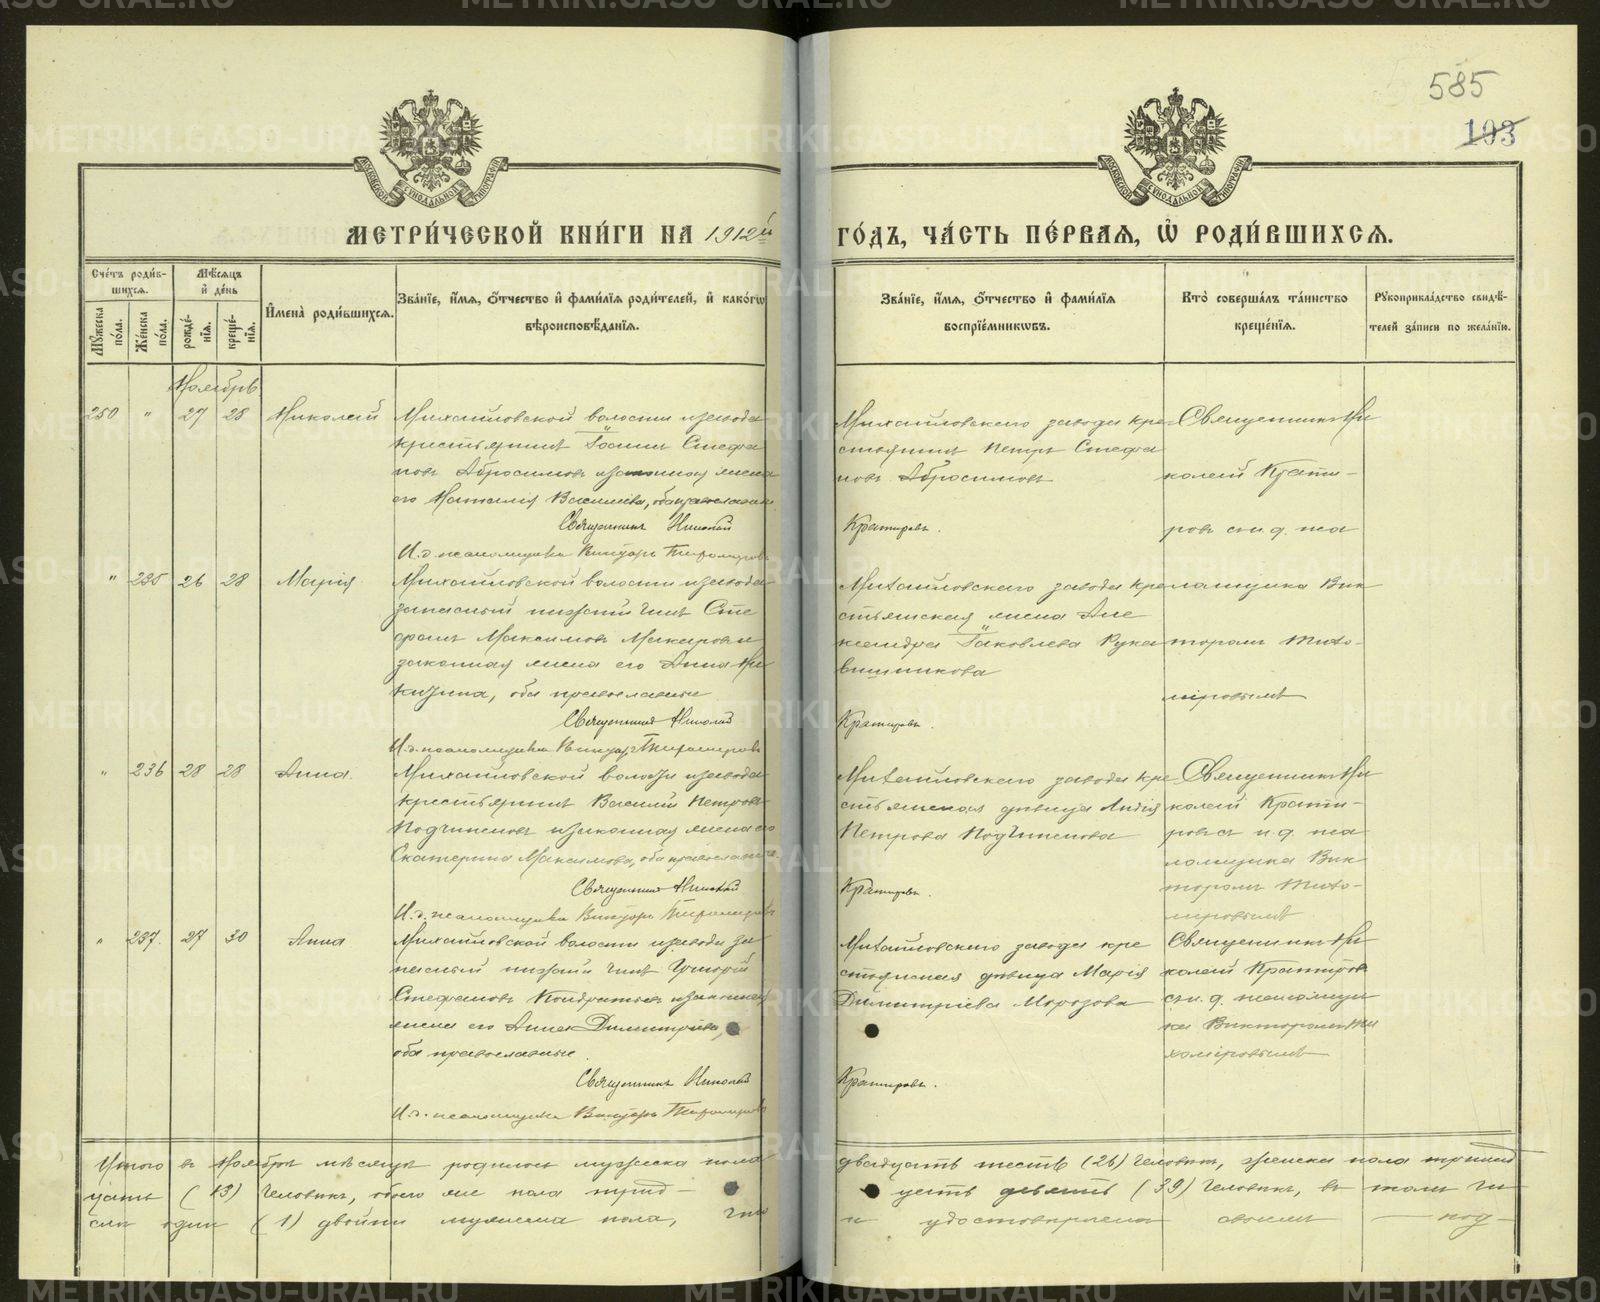 585
103
МОСКОВСКОЙ СѴНОДАЛЬНОЙ ТИПОГРАФІИ
МОСКОВСКОЙ СѴНОДАЛЬНОЙ ТИПОГРАФІИ
МЕТРИ́ЧЕСКОЙ КНИ́ГИ НА 1912й
ГО́ДЪ, ЧА́СТЬ ПЕ́РВАЯ, Ѡ РОДИ́ВШИХСЯ.
Сче́тъ роди́в-
шихся.
Мѣ́сяцъ
и҆ де́нь
Му́жеска по́ла.
Же́нска по́ла.
рожде́-нїя.
креще́-нїя.
И҆мена̀ роди́вшихся.
Зва́нїе, и҆́мя, ѻ҆́тчество и҆ фами́лїя роди́телей, и҆ како́гѡ
вѣроисповѣ́данїя.
Зва́нїе, и҆́мя, ѻ҆́тчество и҆ фами́лїя
воспрїе́мникѡвъ.
Кто̀ соверша́лъ та́инство
креще́нїя.
Рꙋкоприкла́дство свидѣ́-
телей за́писи по жела́нїю.
Ноябрь
250 " 27 28 Николай
Михайловской волости и завода
крестьянинъ Іоаннъ Стефа
новъ Абросимовъ и законная жена
его Наталия Васильева, оба православные
Священникъ Николай
И. д. псаломщика Викторъ Тихомировъ
Михайловскаго завода кре-
стьянинъ Петръ Стефа
новъ Абросимовъ
Кратировъ.
Священникъ Ни
колай Крати-
ровъ с и. д. пса
" 235 26 28 Марія
Михайловской волости и завода
запасный нижній чинъ Сте
фанъ Максимовъ Макаровъ и
законная жена его Анна Ни
китина, оба православные
Священникъ Николай
И. д. псаломщика Викторъ Тихомировъ
Михайловскаго завода кре
стьянская жена Але
ксандра Іаковлева Рука
вишникова
Кратировъ.
ломщика Вик
торомъ Тихо-
міровымъ
" 236 28 28 Анна.
Михайловской волости и завода
крестьянинъ Василій Петровъ
Подчиненовъ и законная жена его
Екатерина Максимова, оба православные.
Священникъ Николай
И. д. псаломщика Викторъ Тихомировъ
Михайловскаго завода кре-
стьянская дѣвица Лидія
Петрова Подчиненова
Кратировъ.
Священникъ Ни
колай Крати-
ровъ с и. д. пса
ломщика Вик
торомъ Тихо-
міровымъ
" 237. 27 30 Анна
Михайловской волости и завода за
пасный нижній чинъ Григорій
Стефановъ Кондратьевъ и законная
жена его Анна Димитріева,
оба православные.
Священникъ Николай
И. д. псаломщика Викторъ Тихомировъ
Михайловскаго завода кре
стьянская дѣвица Марія
Димитріева Морозова
Кратировъ.
Священникъ Ни
колай Кратировъ
съ и. д. псаломщи
ка Викторомъ Ти
хоміровымъ
Итого въ Ноябрѣ мѣсяцѣ родилось мужеска пола двадцать шесть (26) человѣкъ, женска пола тринад
цать (13) человѣкъ, обоего же пола трид- цать девять (39) человѣкъ, въ томъ чи
слѣ одни (1) двойни мужеска пола, что и удостовѣряемъ своимъ — под-